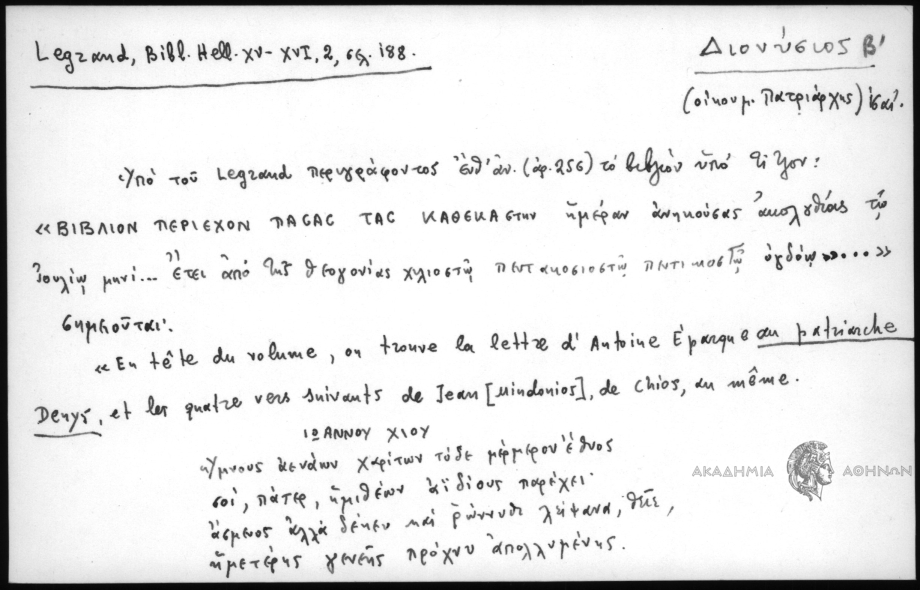 Legrand, Bibl. Hell. XV-XVI, 2, σελ. 188.
Διονύσιος Β'
(οἰκουμ. Πατριάρχης)
Ὑπό τοῦ Legrand περιγράφοντος ἐνθ' ἀν. (ἀρ. 256) τό βιβλίον ὑπό τίτλον:
«ΒΙΒΛΙΟΝ ΠΕΡΙΕΧΟΝ ΠΑCΑC ΤΑC ΚΑΘΕΚΑστην ἡμέραν ἀνηκούσας ἀκολυθίας τῷ
Ἰουλίῳ μηνί... Ἔτει ἀπό τῆς θεογονίας χιλιοστῷ πεντακοσιοστῷ πεντικοστῷ ὀγδόῳ....»
σημειοῦται·
«En tête du volume, on trouve la lettre d'Antoine Éparque au patriarche
Denys, et les quatre vers suivants de Jean [Mindonios], de Chios, au même.
ΙΩΑΝΝΟΥ ΧΙΟΥ
Ὕμνους ἀενάων χαρίτων τόδε μέρμερον ἔθνος
σοί, πάτερ, ἡμιθέων ἀϊδίους παρέχει·
ἄσμενος ἀλλά δέχευ καί ῥώννυθι λείψανα,
ἡμετέρης γενεῆς πρόχνυ ἀπολλυμένης.
ΑΚΑΔΗΜΙΑ ΑΘΗΝΩΝ